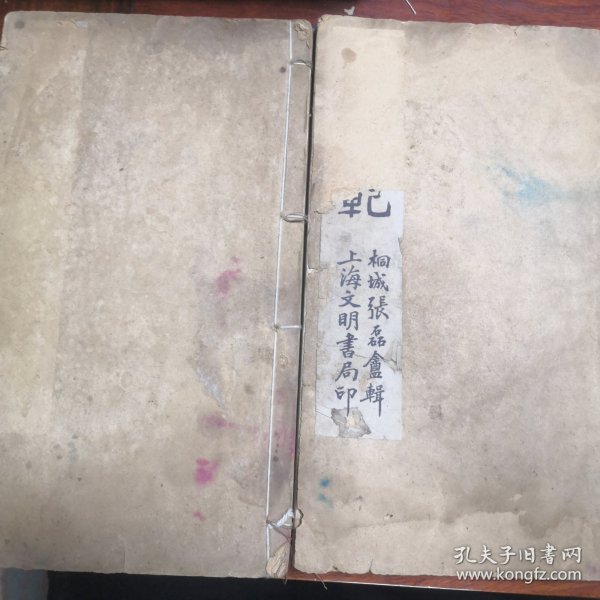 範
桐城張磊盦輯
上海文明書局印
孔夫子旧书网
www.kongfz.com